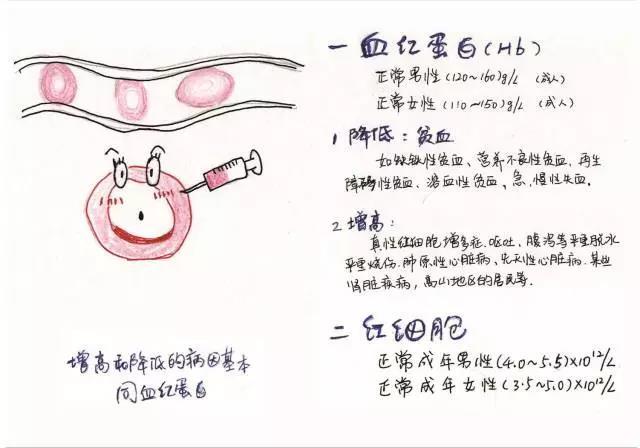 一 血红蛋白(Hb)
正常男性(120~160)g/L (成人)
正常女性(110~150)g/L (成人)
1 降低：贫血
如缺铁性贫血、营养不良性贫血、再生
障碍性贫血、溶血性贫血、急、慢性失血。
2 增高：
真性红细胞增多症、呕吐、腹泻等严重脱水
严重烧伤、肺原性心脏病、先天性心脏病、某些
肾脏疾病，高山地区的居民等.
二 红细胞
正常成年男性(4.0~5.5)×10¹²/L
正常成年女性(3.5~5.0)×10¹²/L
增高和降低的病因基本
同血红蛋白